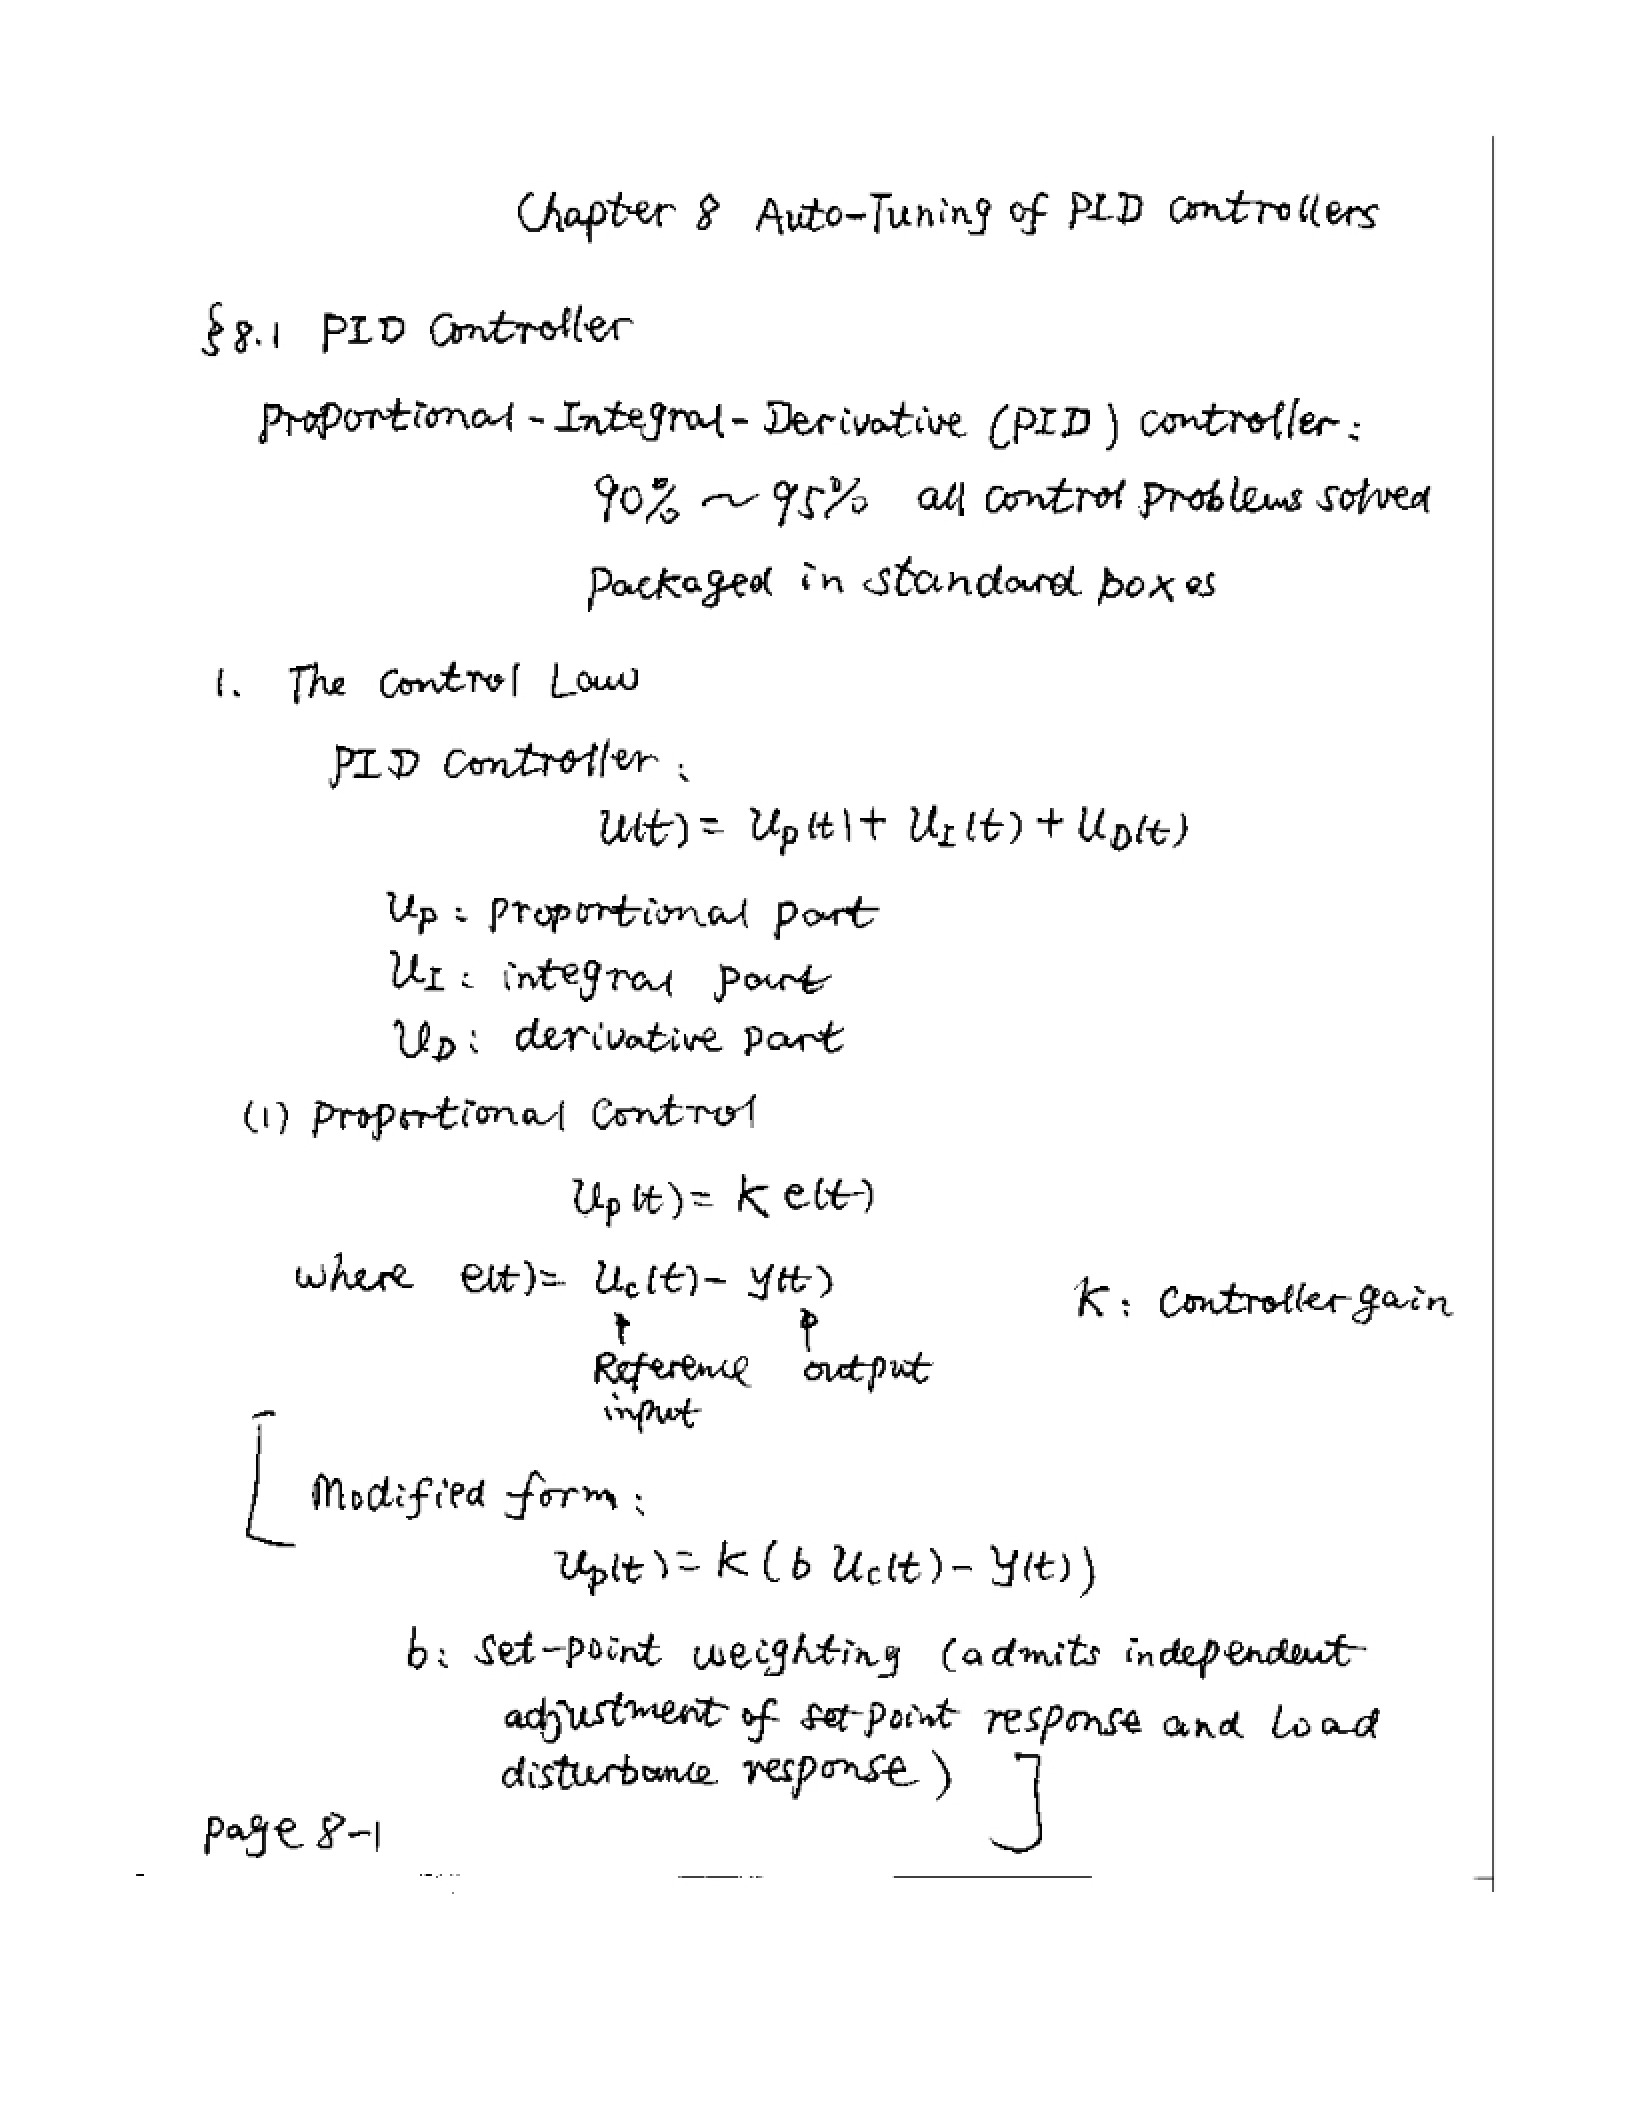 Chapter 8 Auto-Tuning of PID Controllers
§8.1 PID Controller
Proportional-Integral-Derivative (PID) controller:
90% ~ 95% all control problems solved
packaged in standard boxes
1. The Control Law
PID Controller:
u(t) = u_P(t) + u_I(t) + u_D(t)
u_P: proportional part
u_I: integral part
u_D: derivative part
(1) Proportional Control
u_P(t) = K e(t)
where e(t) = u_c(t) - y(t)
K: Controller gain
Reference output
input
Modified form:
u_P(t) = K(b u_c(t) - y(t))
b: set-point weighting (admits independent
adjustment of set-point response and load
disturbance response)
page 8-1